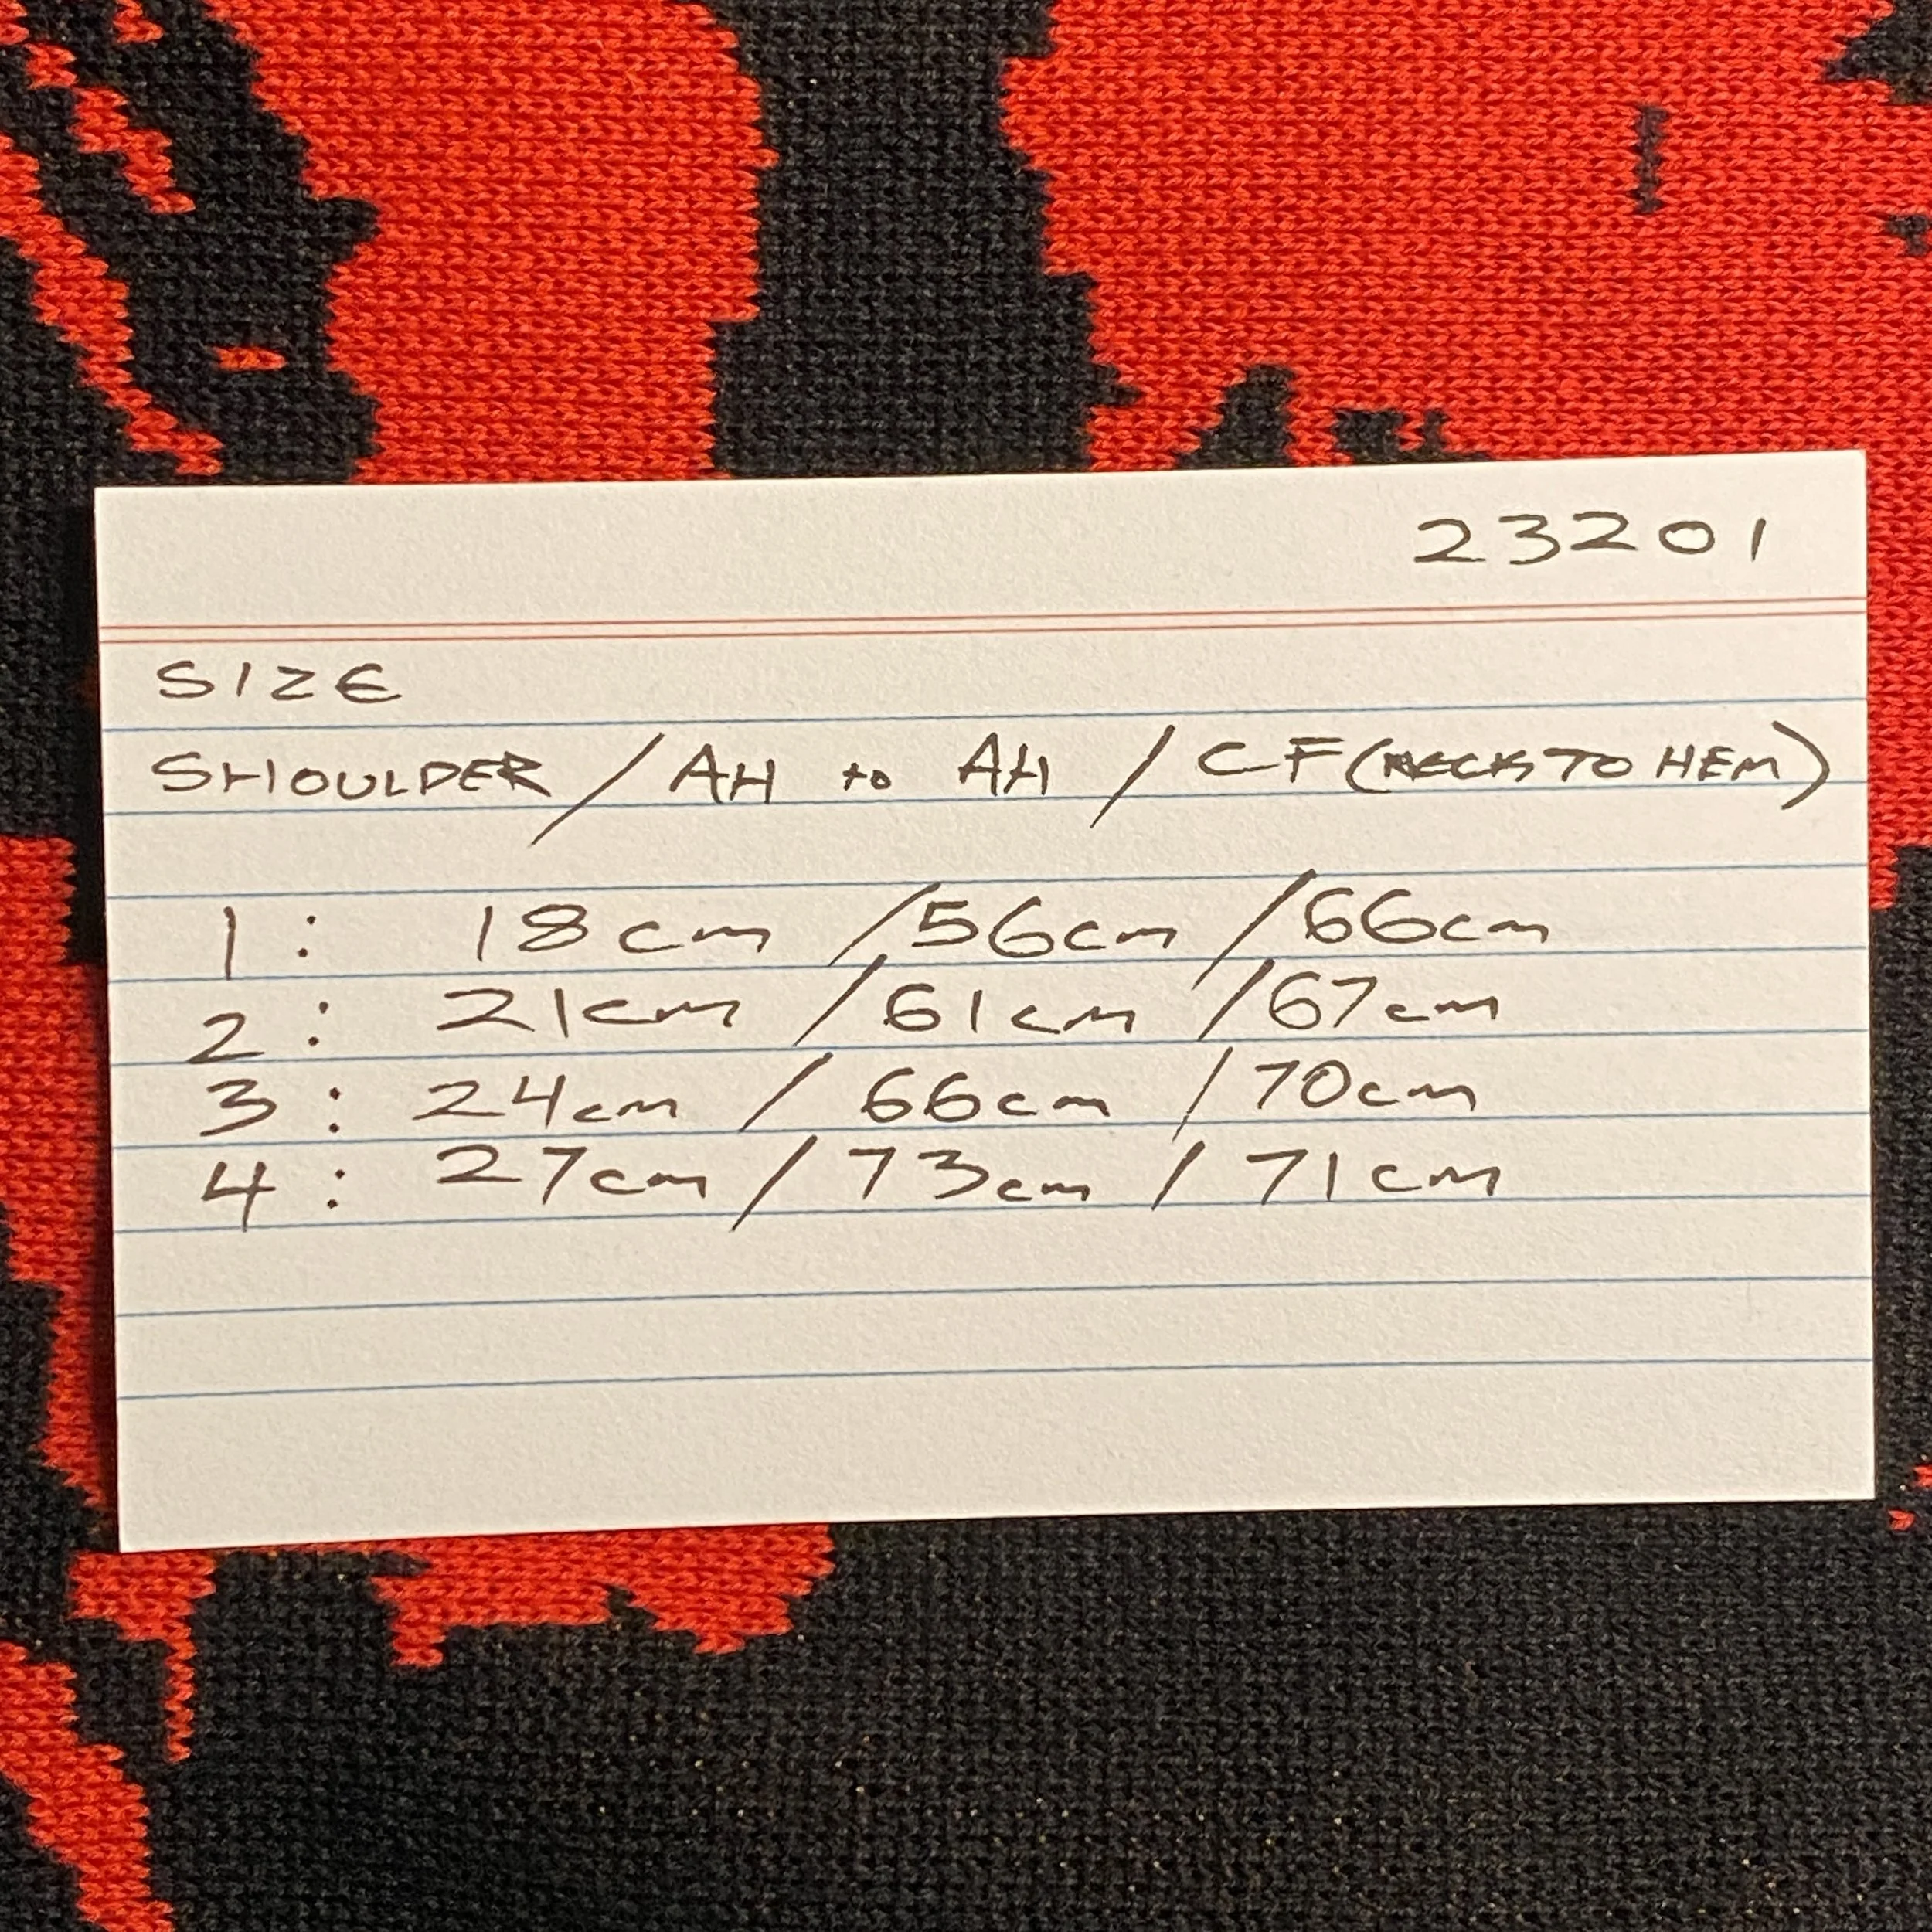 23201
SIZE
SHOULDER / AH to AH / CF (NECK TO HEM)
1 : 18cm / 56cm / 66cm
2 : 21cm / 61cm / 67cm
3 : 24cm / 66cm / 70cm
4 : 27cm / 73cm / 71cm